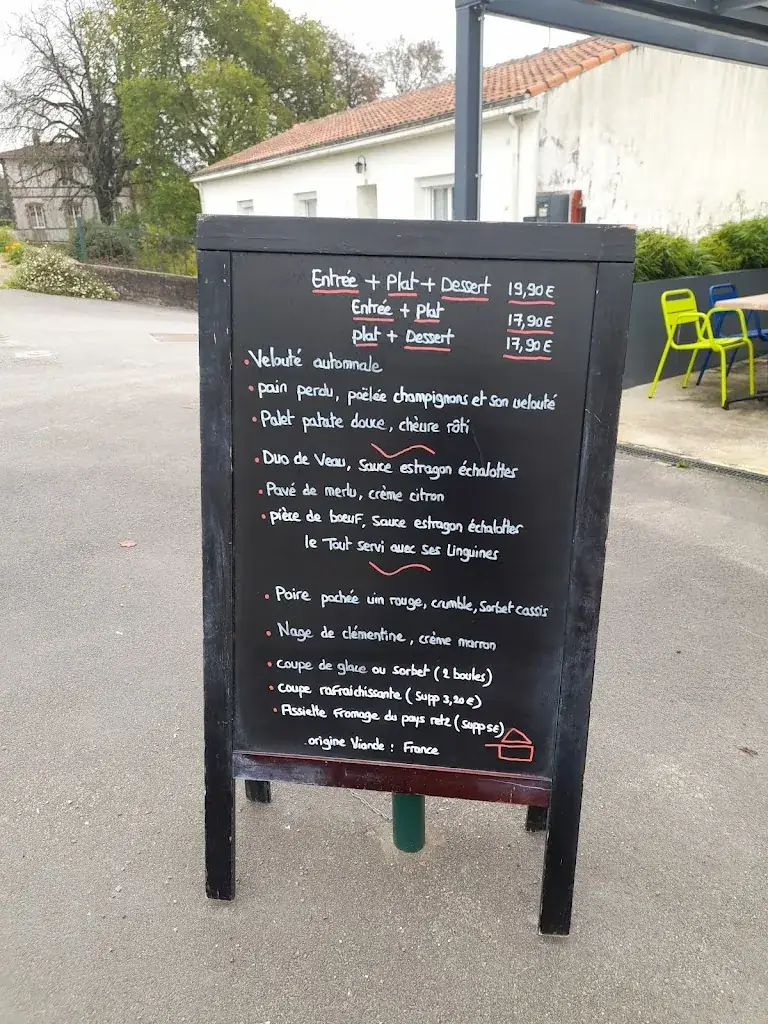 Entrée + Plat + Dessert 19,90€
Entrée + Plat 17,90€
plat + Dessert 17,90€
• Velouté automnale
• pain perdu, poëlée champignons et son velouté
• Palet patate douce, chèvre rôti
• Duo de Veau, Sauce estragon échalottes
• Pavé de merlu, crème citron
• pièce de boeuf, Sauce estragon échalottes
le Tout servi avec ses linguines
• Poire pochée vin rouge, crumble, Sorbet cassis
• Nage de clémentine, crème marron
• coupe de glace ou sorbet (2 boules)
• Coupe rafraichissante (Supp 3,20€)
• Assiette fromage du pays retz (supp 5€)
origine Viande : France